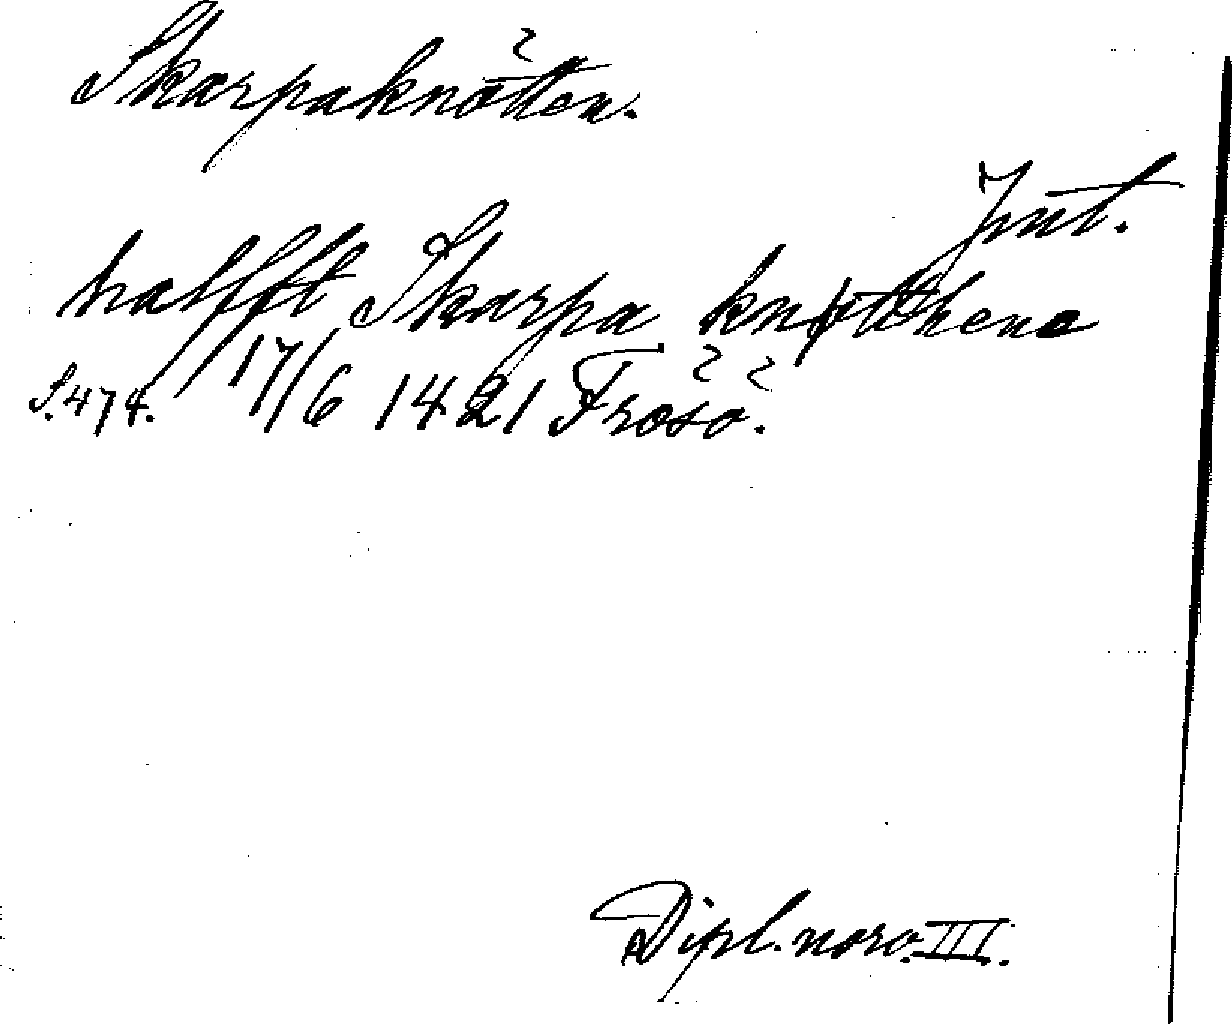 Skarpaknötten.
Jmt.
halfft Skarpa knøtthene
S. 474. 17/6 1421 Frösö.
Dipl. norv. III.